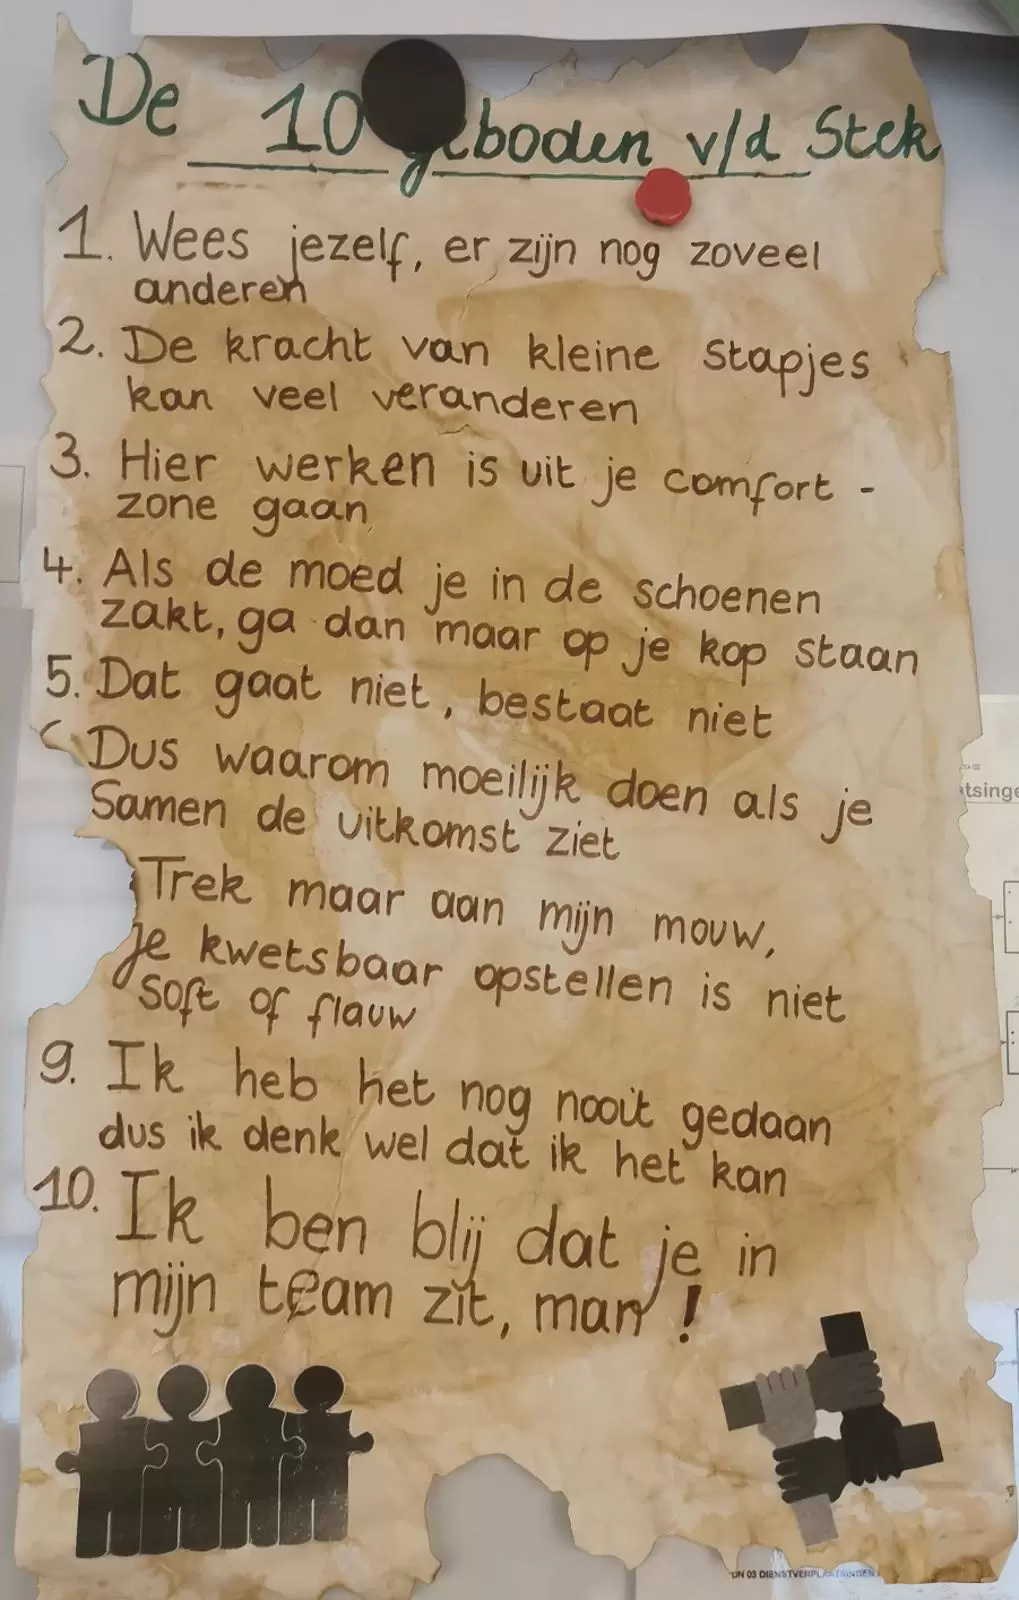 De 10 geboden v/d Stek
1. Wees jezelf, er zijn nog zoveel
anderen
2. De kracht van kleine stapjes
kan veel veranderen
3. Hier werken is uit je comfort -
zone gaan
4. Als de moed je in de schoenen
zakt, ga dan maar op je kop staan
5. Dat gaat niet, bestaat niet
Dus waarom moeilijk doen als je
Samen de uitkomst ziet
Trek maar aan mijn mouw,
Je kwetsbaar opstellen is niet
soft of flauw
9. Ik heb het nog nooit gedaan
dus ik denk wel dat ik het kan
10. Ik ben blij dat je in
mijn team zit, man !